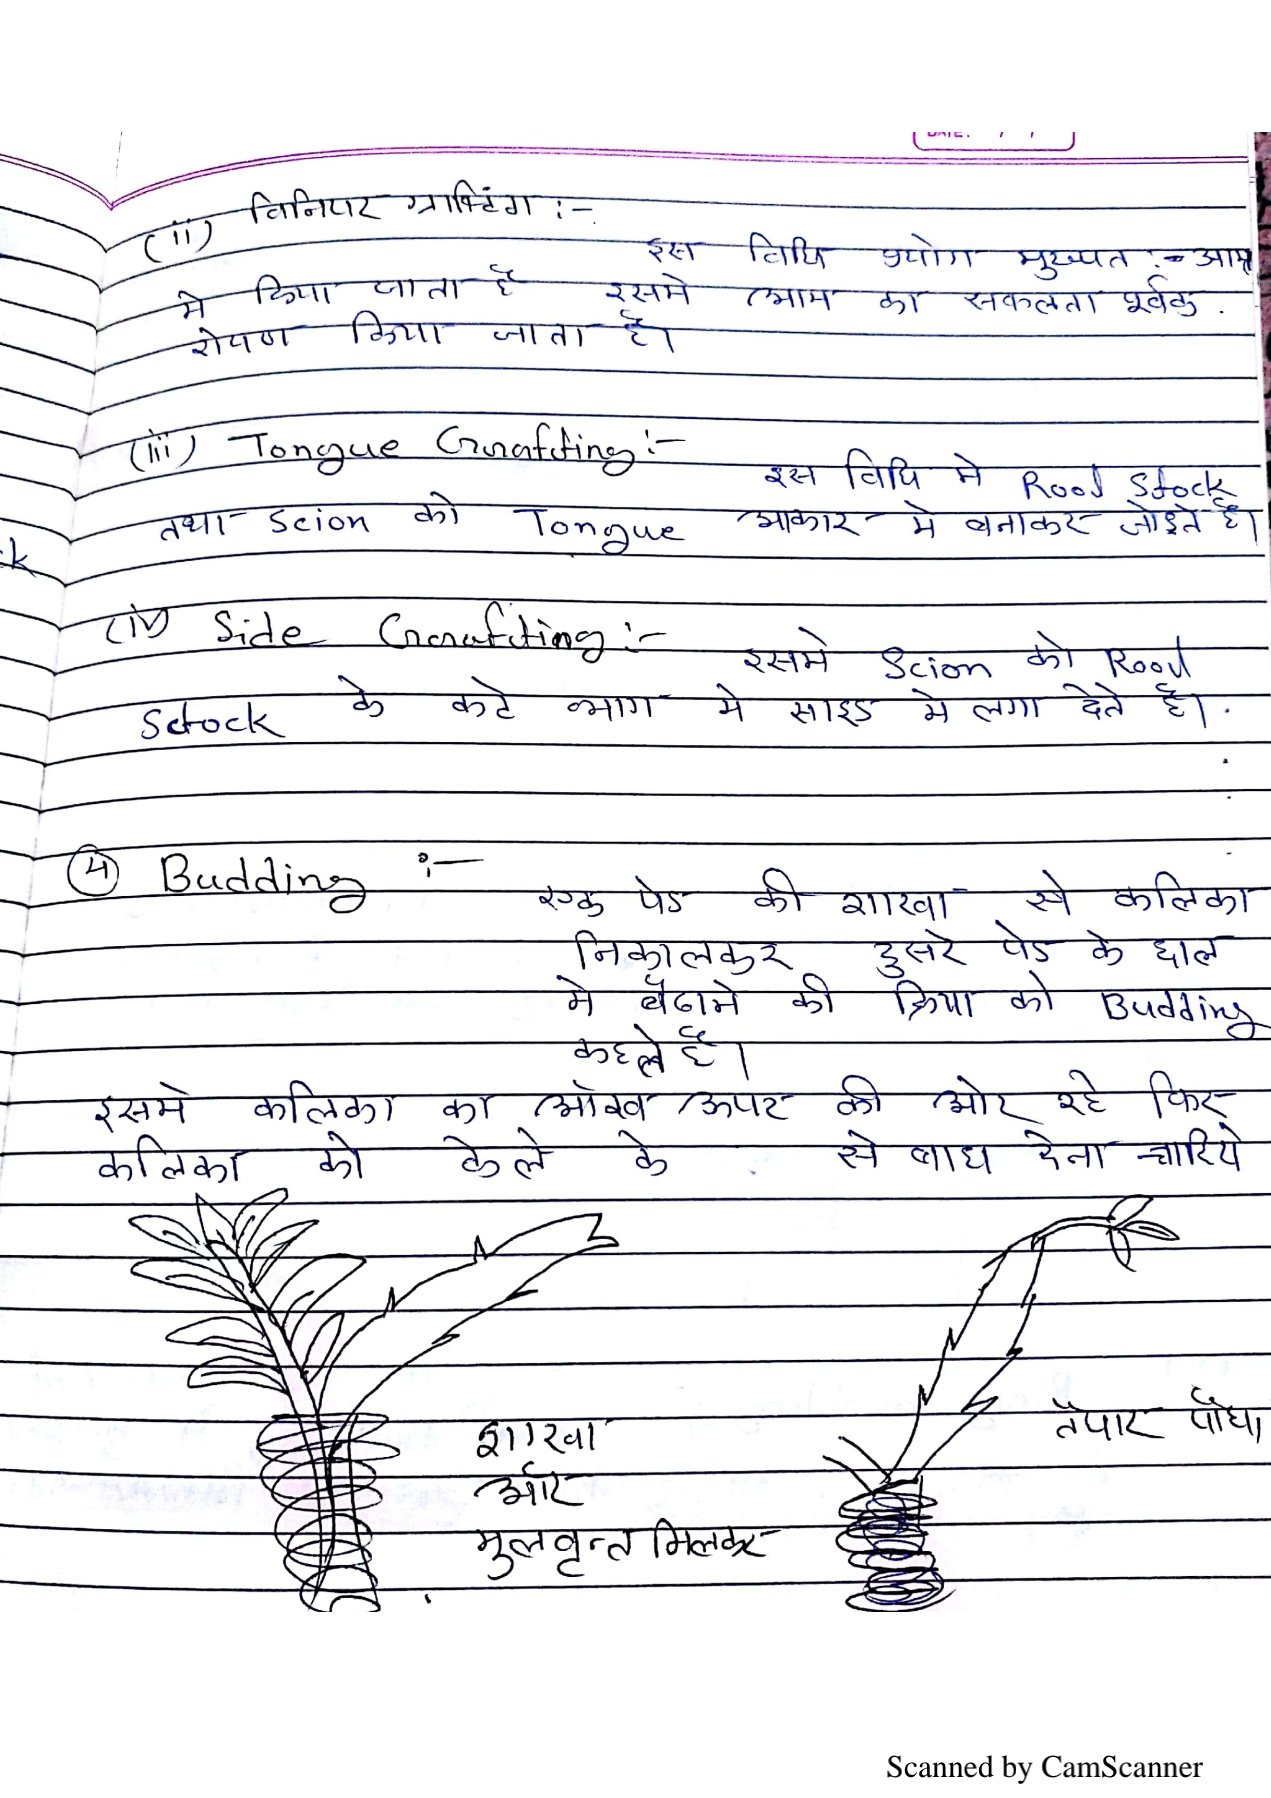 DATE: / /
(ii) विनियर ग्राफ्टिंग :-
इस विधि प्रयोग मुख्यत :- आम
मे किया जाता है इसमे आम का सफलता पूर्वक .
रोपण किया जाता है।
(iii) Tongue Grafting :-
इस विधि मे Root Stock
तथा Scion को Tongue आकार मे बनाकर जोड़ते है।
k
(iv) Side Grafting :-
इसमे Scion को Root
Stock के कटे भाग मे साइड मे लगा देते है।
4 Budding :-
एक पेड की शाखा से कलिका
निकालकर दुसरे पेड के छाल
मे बैठाने की क्रिया को Budding
कहते है।
इसमे कलिका का आँख ऊपर की ओर रहे फिर
कलिका को केले के से बाध देना चाहिये
शाखा
और
मुलवृन्त मिलकर
तैयार पौधा
Scanned by CamScanner